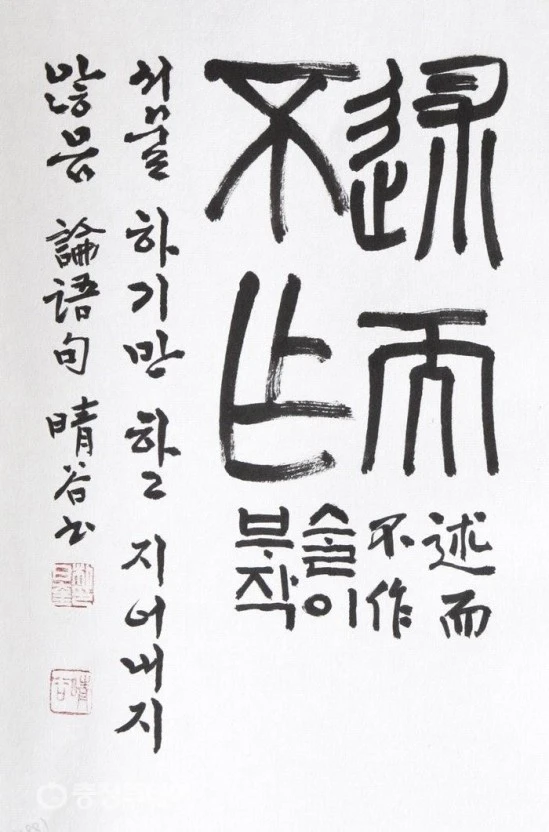 述而
不作
述而
不作
술이
부작
서술 하기만 할 지어내지
않음 論語句 晴谷書